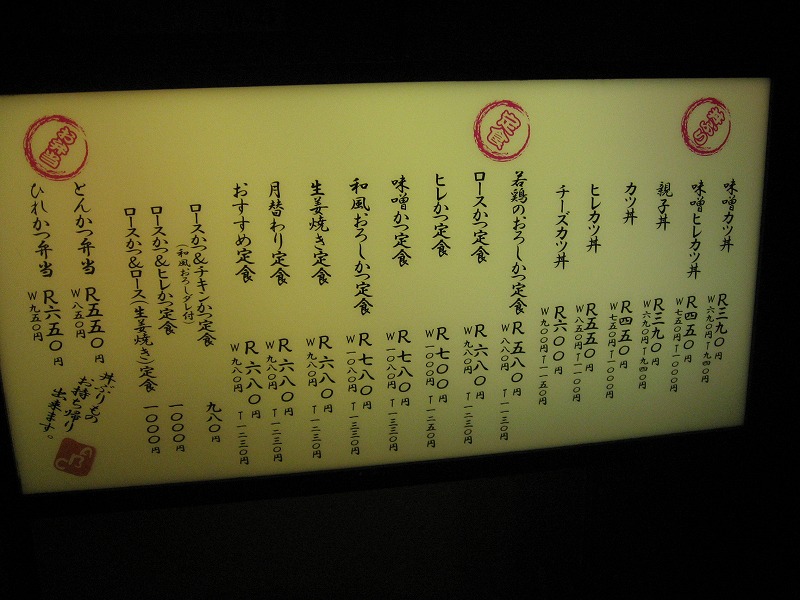 丼物
味噌カツ丼 R三九〇円
W六九〇円 T九四〇円
味噌ヒレカツ丼 R四五〇円
W七五〇円 T一〇〇〇円
親子丼 R三九〇円
W六九〇円 T九四〇円
カツ丼 R四五〇円
W七五〇円 T一〇〇〇円
ヒレカツ丼 R五五〇円
W八五〇円 T一一〇〇円
チーズカツ丼 R六〇〇円
W九〇〇円 T一一五〇円
定食
若鶏のおろしかつ定食 R五八〇円
W八八〇円 T一一三〇円
ロースかつ定食 R六八〇円
W九八〇円 T一二三〇円
ヒレかつ定食 R七〇〇円
W一〇〇〇円 T一二五〇円
味噌かつ定食 R七八〇円
W一〇八〇円 T一三三〇円
和風おろしかつ定食 R七八〇円
W一〇八〇円 T一三三〇円
生姜焼き定食 R六八〇円
W九八〇円 T一二三〇円
月替わり定食 R六八〇円
W九八〇円 T一二三〇円
おすすめ定食 R六八〇円
W九八〇円 T一二三〇円
ロースかつ&チキンかつ定食 九八〇円
(和風おろしダレ付)
ロースかつ&ヒレかつ定食 一〇〇〇円
ロースかつ&ロース(生姜焼き)定食 一〇〇〇円
お弁当
とんかつ弁当 R五五〇円
W八五〇円
ひれかつ弁当 R六五〇円
W九五〇円
丼ぶりもの
お持ち帰り
出来ます。